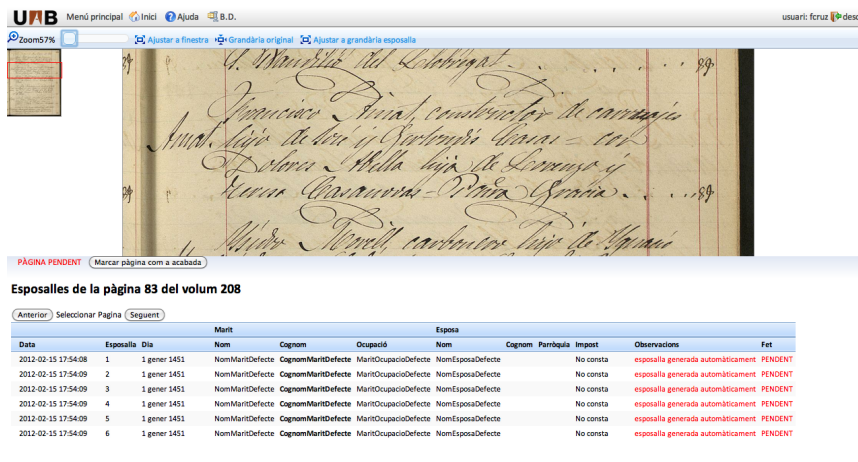 UAB Menú principal Inici Ajuda B.D. usuari: fcruz desc
Zoom57% Ajustar a finestra Grandària original Ajustar a grandària esposalla
Francisco Amat, constructor de carruajes
Amat hijo de José y
Dolores Abella hija de Lorenzo y
Teresa Casanovas
hijo de
PÀGINA PENDENT Marcar pàgina com a acabada
Esposalles de la pàgina 83 del volum 208
Anterior Seleccionar Pagina Seguent
Marit Esposa
Data Esposalla Dia Nom Cognom Ocupació Nom Cognom Parròquia Impost Observacions Fet
2012-02-15 17:54:08 1 1 gener 1451 NomMaritDefecte CognomMaritDefecte MaritOcupacioDefecte NomEsposaDefecte No consta esposalla generada automàticament PENDENT
2012-02-15 17:54:09 2 1 gener 1451 NomMaritDefecte CognomMaritDefecte MaritOcupacioDefecte NomEsposaDefecte No consta esposalla generada automàticament PENDENT
2012-02-15 17:54:09 3 1 gener 1451 NomMaritDefecte CognomMaritDefecte MaritOcupacioDefecte NomEsposaDefecte No consta esposalla generada automàticament PENDENT
2012-02-15 17:54:09 4 1 gener 1451 NomMaritDefecte CognomMaritDefecte MaritOcupacioDefecte NomEsposaDefecte No consta esposalla generada automàticament PENDENT
2012-02-15 17:54:09 5 1 gener 1451 NomMaritDefecte CognomMaritDefecte MaritOcupacioDefecte NomEsposaDefecte No consta esposalla generada automàticament PENDENT
2012-02-15 17:54:09 6 1 gener 1451 NomMaritDefecte CognomMaritDefecte MaritOcupacioDefecte NomEsposaDefecte No consta esposalla generada automàticament PENDENT